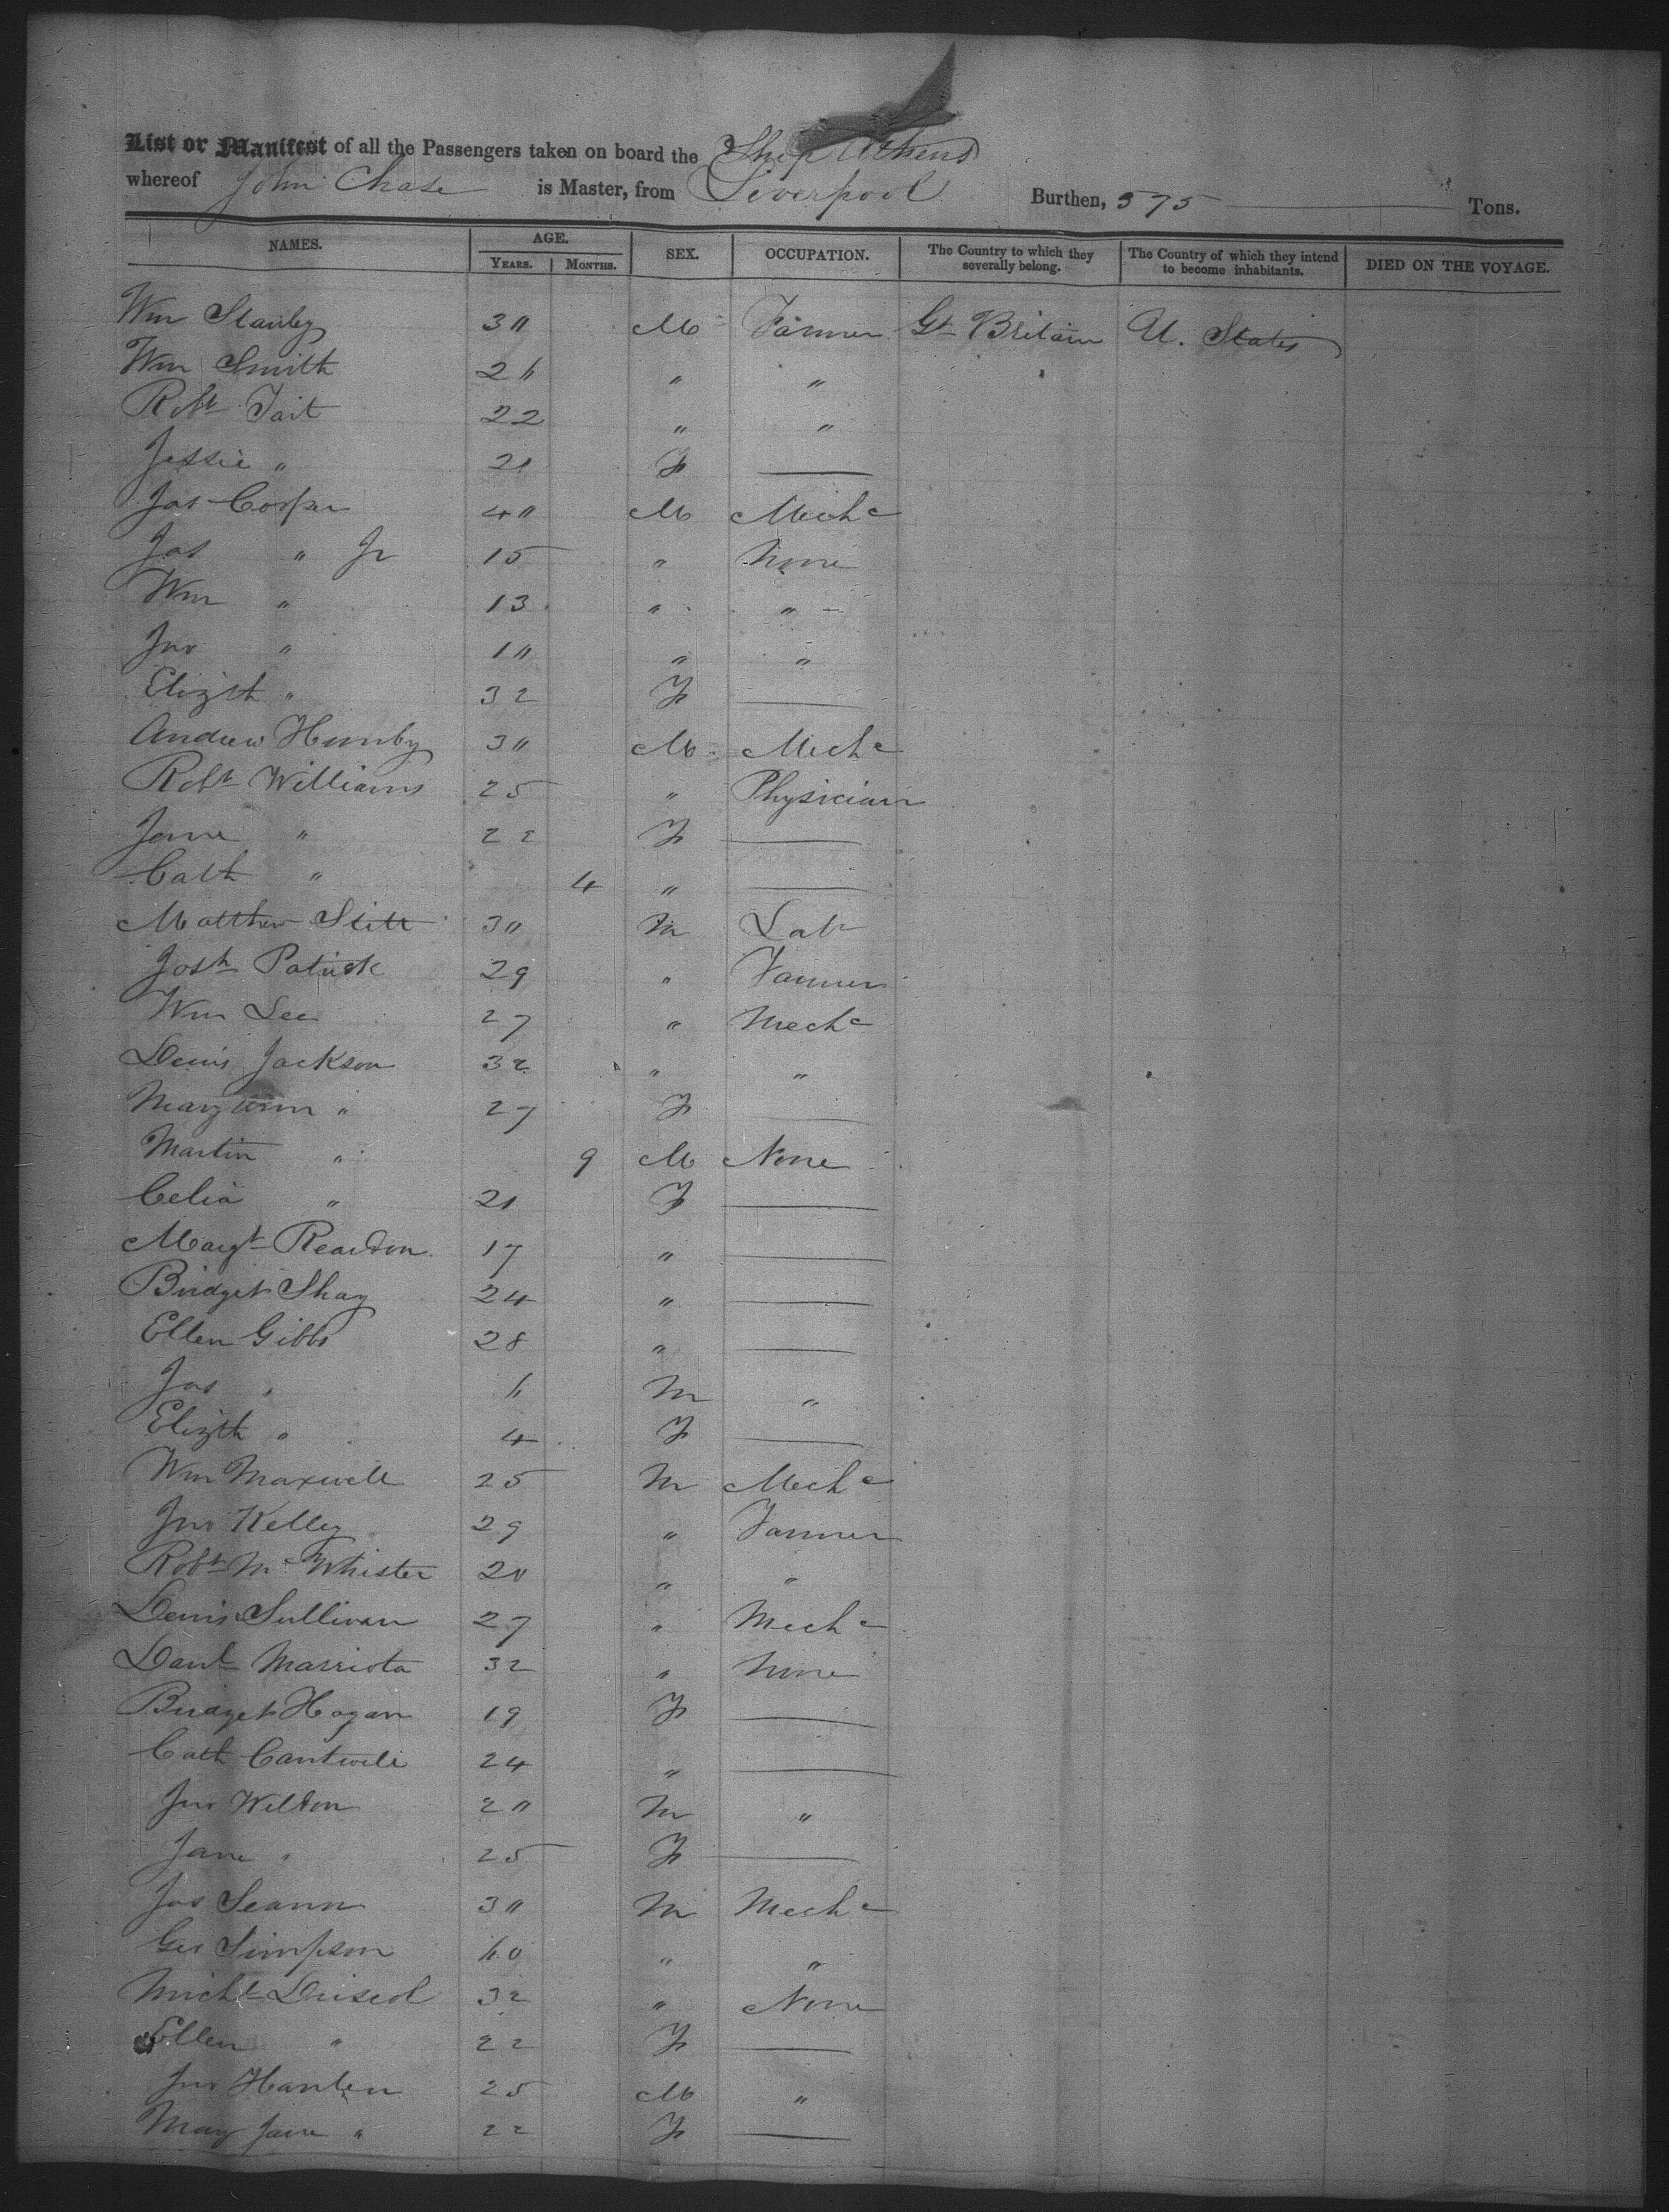 List or Manifest of all the Passengers taken on board the Ship Athens
whereof John Chase is Master, from Liverpool Burthen, 575 Tons.
NAMES. AGE. YEARS. MONTHS. SEX. OCCUPATION. The Country to which they severally belong. The Country of which they intend to become inhabitants. DIED ON THE VOYAGE.
Wm Stanley 30 M Farmer Gt Britain U. States
Wm Smith 26 " "
Robt Tait 22 " "
Jessie " 21 F —
Jas Cooper 40 M Mechc
Jas " Jr 15 " None
Wm " 13 " "
Jno " 10 " "
Elizth " 32 F —
Andrew 30 M Mechc
Robt Williams 25 " Physician
Jane " 22 F —
Cath " 4 " —
Matthew 30 M Labr
Josh Patrick 29 " Farmer
Wm Lee 27 " Mechc
Denis Jackson 32 " "
Mary Ann " 27 F —
Martin " 9 M None
Celia " 21 F —
Margt Reardon 17 " —
Bridget Shay 24 " —
Ellen Gibbs 28 " —
Jas " 6 M "
Elizth " 4 F —
Wm Maxwell 25 M Mechc
Jno Kelley 29 " Farmer
Robt McWhister 20 " "
Denis Sullivan 27 " Mechc
Danl Marriota 32 " None
Bridget Hogan 19 F —
Cath Cantwell 24 " —
Jno Weldon 20 M "
Jane " 25 F —
Jas 30 M Mechc
Geo Simpson 60 " "
Michl Driscol 32 " None
Ellen " 22 F —
Jno Hanlen 25 M "
Mary Jane " 22 F —